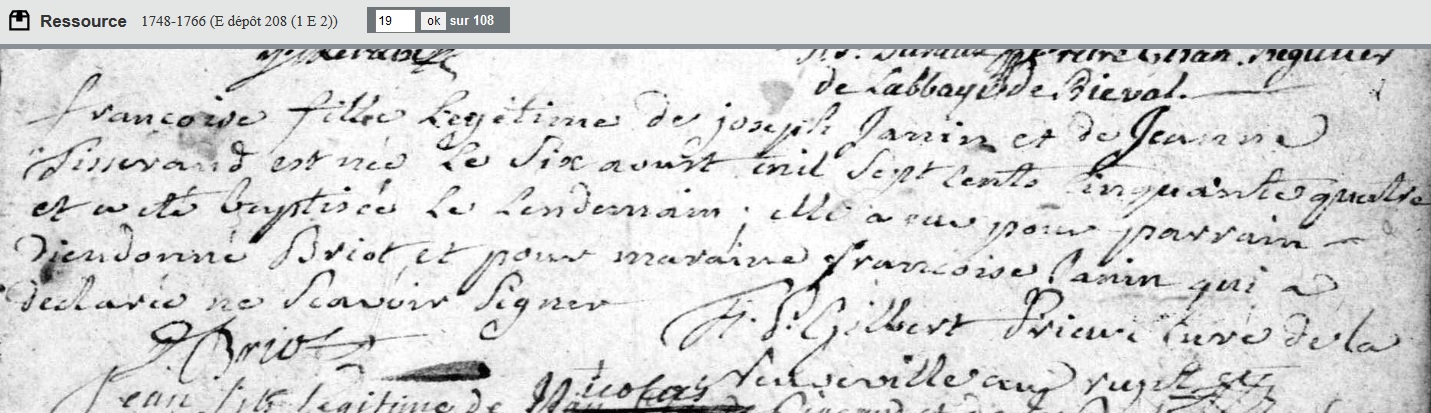 Ressource 1748-1766 (E dépôt 208 (1 E 2)) 19 ok sur 108
de Labbaye de Bieval.
francoise fille Legitime de joseph Janin et de Jeanne
Tisserand est née Le Six aoust mil Sept cents Cinquante quatre
et a eté baptisée Le Lendemain; elle a eue pour parrain
dieudonné Briot et pour maraine francoise Janin qui a
declarée ne Scavoir Signer
Briot
f. P. Gilbert Prieur Curé de la
Neuveville aux
Jean fils legitime de Nicolas